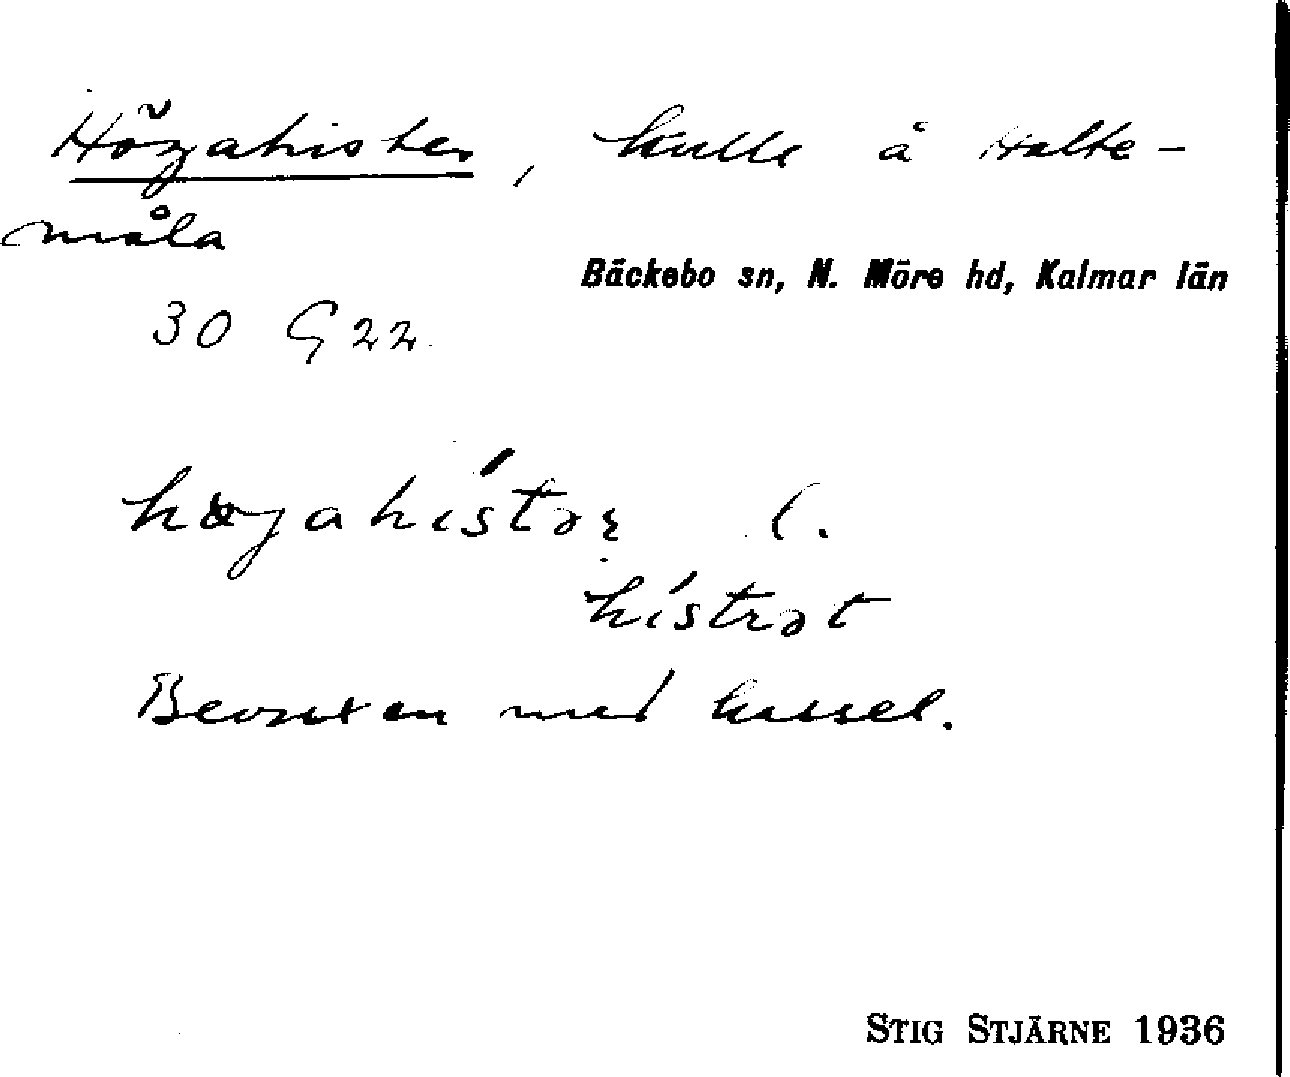 Högahister, kulle å Halte-
måla
Bäckebo sn, N. Möre hd, Kalmar län
30 G 22.
høgahístər l.
hístrət
Bevuxen med hassel.
STIG STJÄRNE 1936